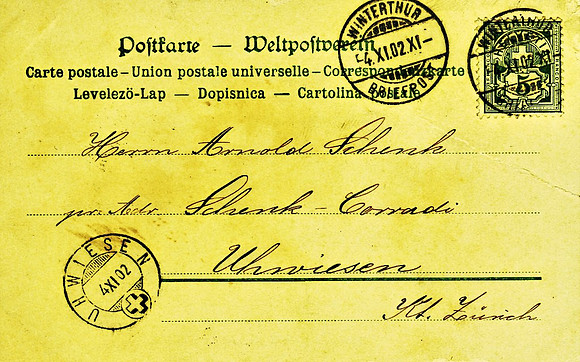 Postkarte — Weltpostverein
Carte postale – Union postale universelle – Correspondenzkarte
Levelezö-Lap — Dopisnica — Cartolina postale
WINTERTHUR
4.XI.02 XI–
BRIEFPOST
WINTERTHUR
5
Herrn Arnold Schenk
pr. Adr. Schenk-Corradi
Uhwiesen
Kt. Zürich
UHWIESEN
4 XI 02